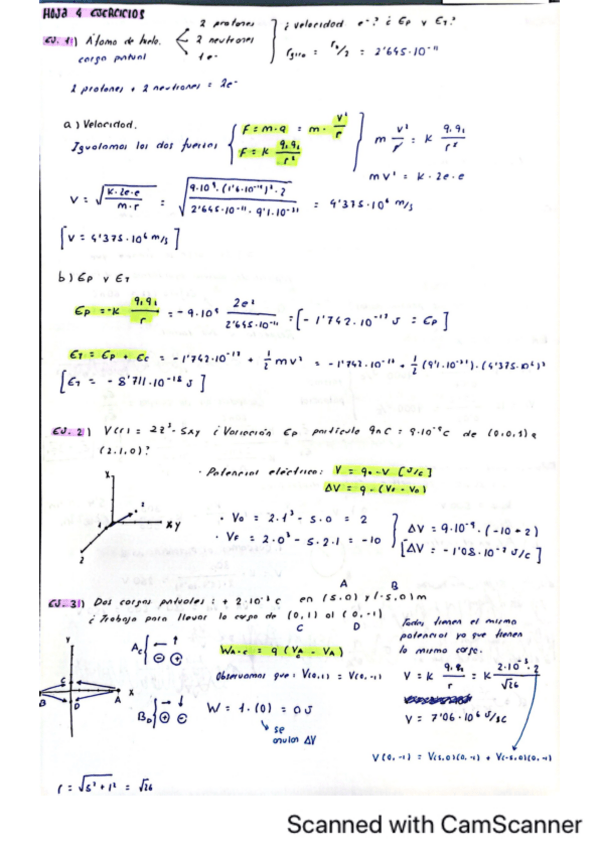 HOJA 4 EJERCICIOS
EJ. 1) Átomo de helio. 2 protones
carga puntual 2 neutrones
1e-
¿velocidad e-? ¿Ep y ET?
rgiro = r0/2 = 2'645·10^-11
2 protones + 2 neutrones = 2e-
a) Velocidad.
Igualamos las dos fuerzas { F = m·a = m· v²/r
F = K q·q1/r² } m v²/r = K q·q1/r²
mv² = K·2e·e
V = √(K·2e·e / m·r) = √(9·10^9·(1'6·10^-19)²·2 / 2'645·10^-11·9'1·10^-31) = 4'375·10^6 m/s
[V = 4'375·10^6 m/s]
b) Ep y ET
Ep = -K q·q1/r = -9·10^9 2e²/2'645·10^-11 = [-1'742·10^-17 J = Ep]
ET = Ep + Ec = -1'742·10^-17 + 1/2 mv² = -1'742·10^-17 + 1/2 (9'1·10^-31)·(4'375·10^6)²
[ET = -8'711·10^-18 J]
EJ. 2) V(r) = 2z³ - 5xy ¿Variación Ep partícula 9nC = 9·10^-9 C de (0,0,1) a
(2,1,0)?
· Potencial eléctrico: V = q·V [J/C]
ΔV = q·(Vf - V0)
X
XY
Z
· V0 = 2·1³ - 5·0 = 2
· Vf = 2·0³ - 5·2·1 = -10
ΔV = 9·10^-9·(-10+2)
[ΔV = -1'08·10^-7 J/C]
A B
EJ. 3) Dos cargas puntuales: +2·10^-3 C en (5,0) y (-5,0)m
¿Trabajo para llevar la carga de (0,1) al (0,-1)
C D
Todas tienen el mismo
potencial ya que tienen
la misma carga.
Observamos que: V(0,1) = V(0,-1)
V = K q·q1/r = K 2·10^-3·2/√26
W = 1·(0) = 0J
V = 7'06·10^6 J/C
se
anulan ΔV
V(0,-1) = V(5,0)(0,-1) + V(-5,0)(0,-1)
Y
C
X
B D A
r = √(5²+1²) = √26
Scanned with CamScanner